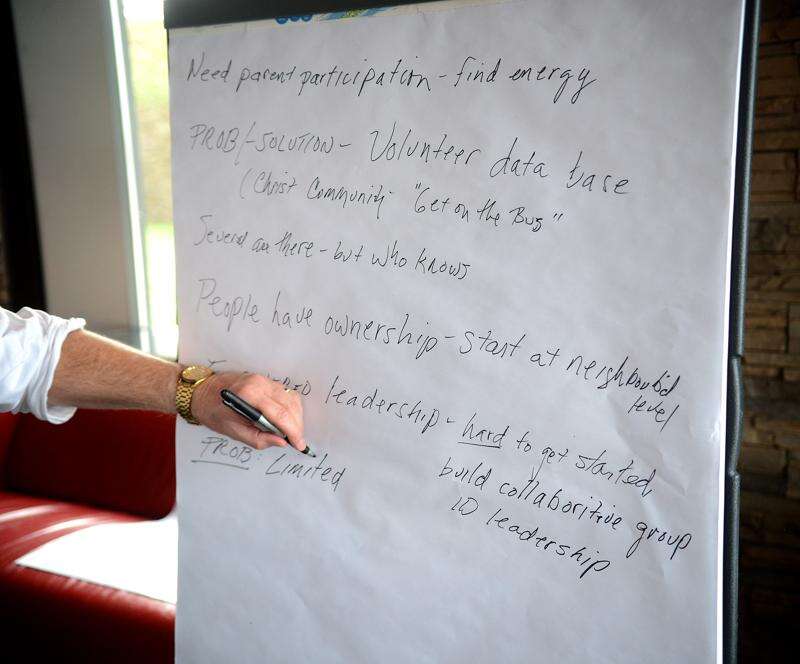 Need parent participation - find energy
PROB/-SOLUTION- Volunteer data base
(Christ Community "Get on the Bus"
Several are there - but who knows
People have ownership - start at neighborh'd
level
leadership - hard to get started,
build collaboritive group
ID leadership
PROB: Limited